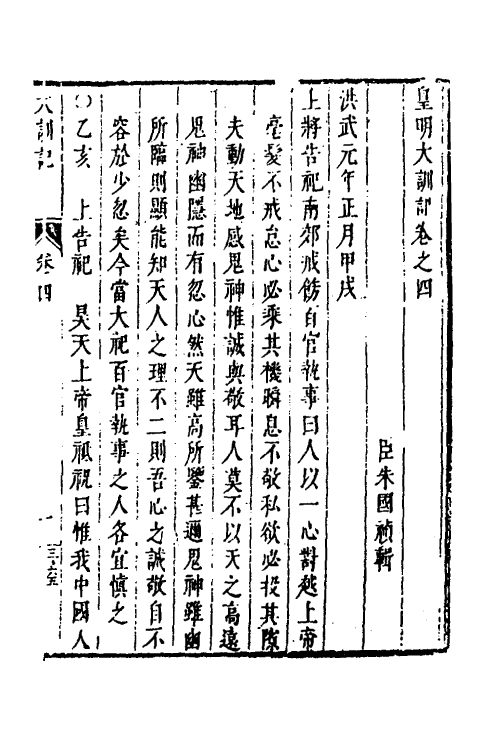 皇明大訓記卷之四
臣朱國禎輯
洪武元年正月甲戌
上將告祀南郊戒飭百官執事曰人以一心對越上帝
毫髮不戒怠心必乘其機瞬息不敬私欲必投其隙
夫動天地感鬼神惟誠與敬耳人莫不以天之高遠
鬼神幽隱而有忽心然天雖高所鑒甚邇鬼神雖幽
所臨則顯能知天人之理不二則吾心之誠敬自不
容於少忽矣今當大祀百官執事之人各宜慎之
○乙亥　上告祀　昊天上帝皇祇祝曰惟我中國人
大訓記　卷四　一